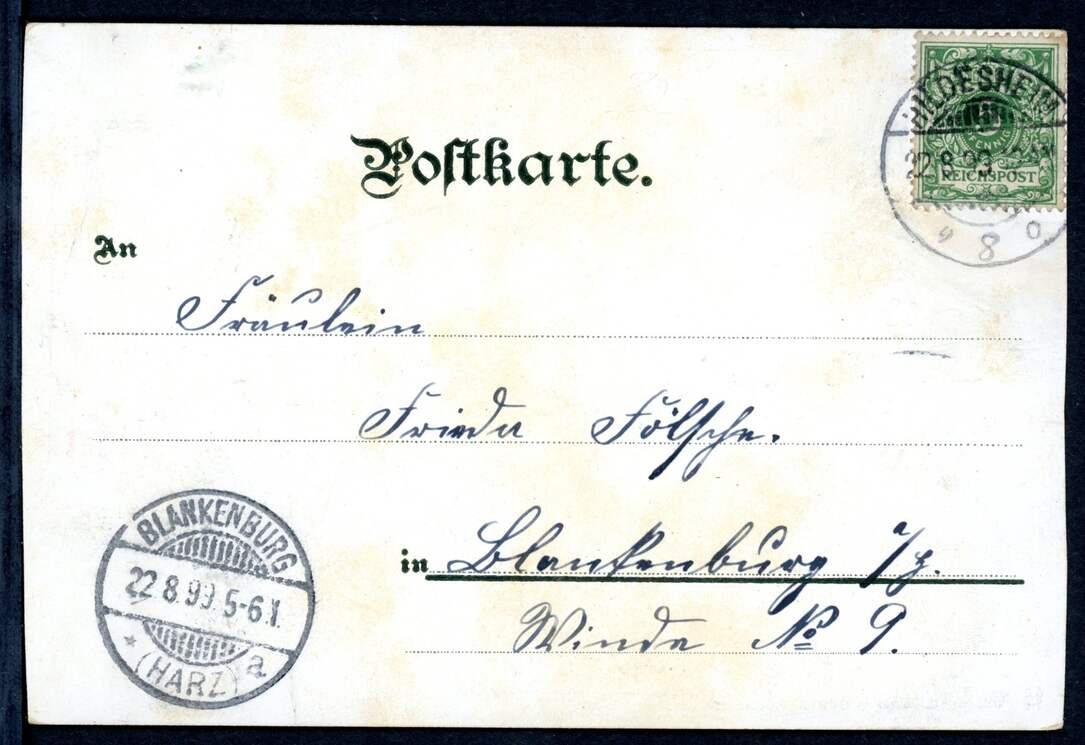 Postkarte.
HILDESHEIM
22.8.99
REICHSPOST
8
An
Fräulein
Frieda Fölsche.
in Blankenburg a/H.
Winde No 9.
BLANKENBURG
22.8.99. 5-6N.
* (HARZ) a